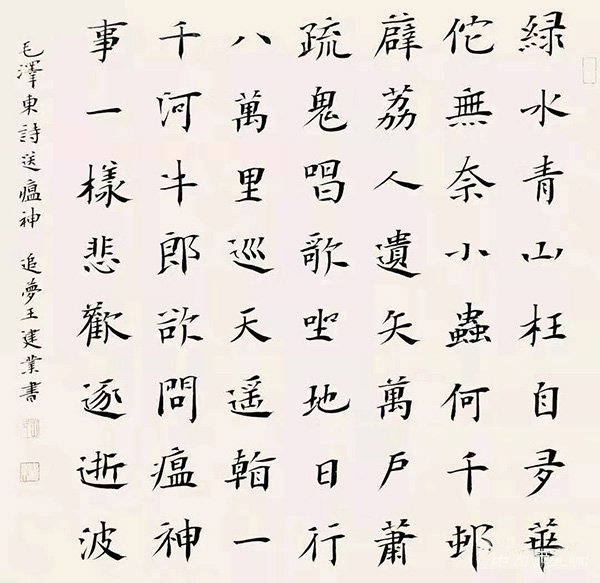 緑水青山枉自多華
佗無奈小蟲何千邨
薜荔人遺矢萬戶蕭
疏鬼唱歌坐地日行
八萬里巡天遥看一
千河牛郎欲問瘟神
事一樣悲歡逐逝波
毛澤東詩送瘟神 追夢王建業書